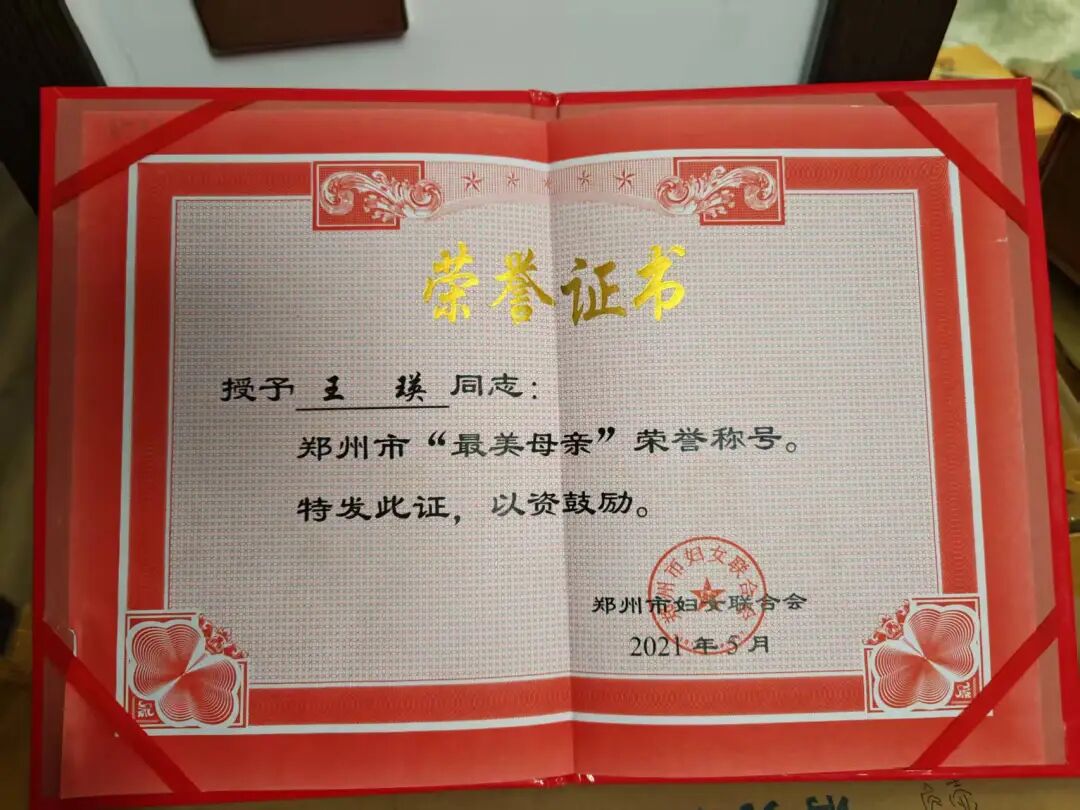 荣誉证书
授予 王 瑛 同志：
郑州市“最美母亲”荣誉称号。
特发此证，以资鼓励。
郑州市妇女联合会
郑州市妇女联合会
2021年5月